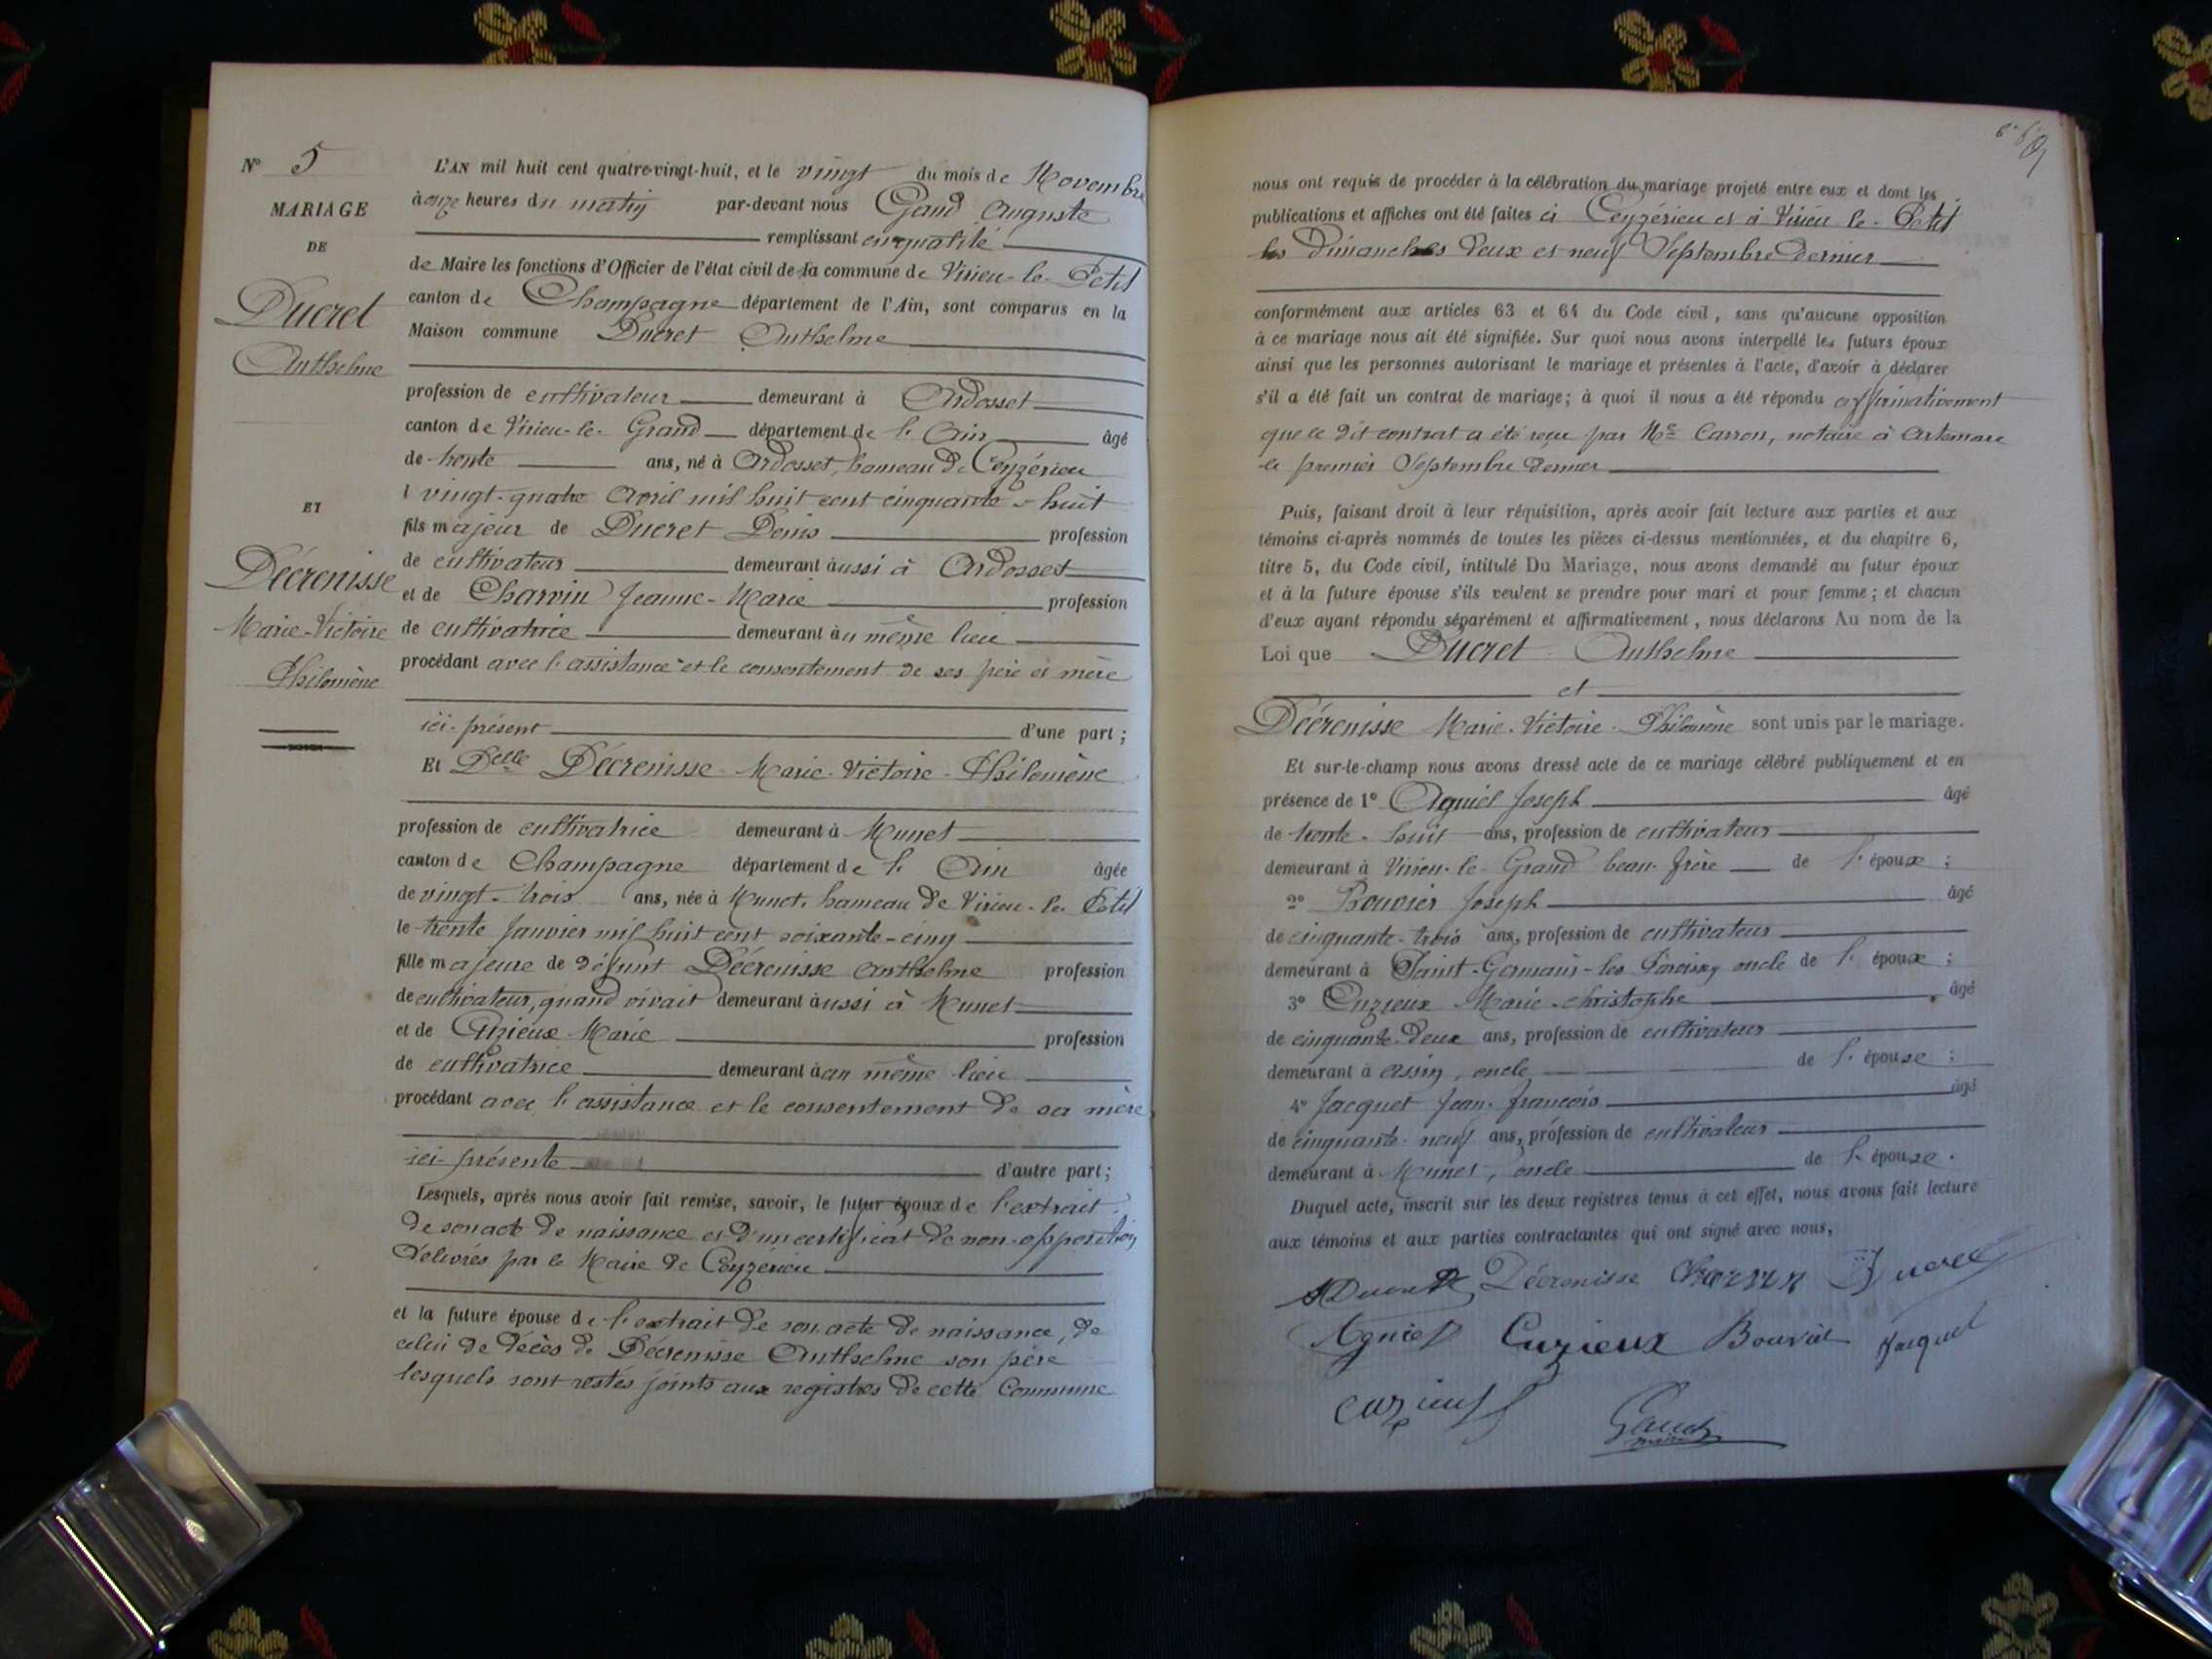 N° 5
MARIAGE
DE
Ducret
Anthelme
ET
Décrenisse
Marie-Victoire
Philomène
L'AN mil huit cent quatre-vingt-huit, et le vingt du mois de Novembre
à onze heures du matin par-devant nous Gaud Auguste
remplissant en qualité
de Maire les fonctions d'Officier de l'état civil de la commune de Virieu-le-Petit
canton de Champagne département de l'Ain, sont comparus en la
Maison commune Ducret Anthelme
profession de cultivateur demeurant à Ardosset
canton de Virieu-le-Grand département de l'Ain âgé
de trente ans, né à Ardosset, hameau de Ceyzérieu
l vingt-quatre Avril mil huit cent cinquante-huit
fils majeur de Ducret Denis profession
de cultivateur demeurant aussi à Ardosset
et de Charvin Jeanne-Marie profession
de cultivatrice demeurant au même lieu
procédant avec l'assistance et le consentement de ses père et mère
ici-présent d'une part ;
Et Delle Décrenisse Marie-Victoire-Philomène
profession de cultivatrice demeurant à Munet
canton de Champagne département de l'Ain âgée
de vingt-trois ans, née à Munet, hameau de Virieu-le-Petit
le trente Janvier mil huit cent soixante-cinq
fille majeure de défunt Décrenisse Anthelme profession
de cultivateur, quand vivait demeurant aussi à Munet
et de Cuzieux Marie profession
de cultivatrice demeurant à au même lieu
procédant avec l'assistance et le consentement de sa mère,
ici-présente d'autre part ;
Lesquels, après nous avoir fait remise, savoir, le futur époux de l'extrait
de son acte de naissance et d'un certificat de non-opposition
délivrés par le Maire de Ceyzérieu
et la future épouse de l'extrait de son acte de naissance, de
celui de décès de Décrenisse Anthelme son père
lesquels sont restés joints aux registres de cette Commune
nous ont requis de procéder à la célébration du mariage projeté entre eux et dont les
publications et affiches ont été faites à Ceyzérieu et à Virieu-le-Petit
les Dimanches deux et neuf Septembre dernier
conformément aux articles 63 et 64 du Code civil, sans qu'aucune opposition
à ce mariage nous ait été signifiée. Sur quoi nous avons interpellé les futurs époux
ainsi que les personnes autorisant le mariage et présentes à l'acte, d'avoir à déclarer
s'il a été fait un contrat de mariage ; à quoi il nous a été répondu affirmativement
que ce dit contrat a été reçu par Me Carron, notaire à Artemare
le premier Septembre dernier
Puis, faisant droit à leur réquisition, après avoir fait lecture aux parties et aux
témoins ci-après nommés de toutes les pièces ci-dessus mentionnées, et du chapitre 6,
titre 5, du Code civil, intitulé Du Mariage, nous avons demandé au futur époux
et à la future épouse s'ils veulent se prendre pour mari et pour femme ; et chacun
d'eux ayant répondu séparément et affirmativement, nous déclarons Au nom de la
Loi que Ducret Anthelme
et
Décrenisse Marie-Victoire-Philomène sont unis par le mariage.
Et sur-le-champ nous avons dressé acte de ce mariage célébré publiquement et en
présence de 1° Agniel Joseph âgé
de trente-huit ans, profession de cultivateur
demeurant à Virieu-le-Grand beau-frère de l'époux ;
2° Bouvier Joseph âgé
de cinquante-trois ans, profession de cultivateur
demeurant à Saint-Germain-les Paroisses oncle de l'époux ;
3° Cuzieux Marie-Christophe âgé
de cinquante-deux ans, profession de cultivateur
demeurant à Assin, oncle de l'épouse ;
4° Jacquet Jean-François âgé
de cinquante-neuf ans, profession de cultivateur
demeurant à Munet, oncle de l'épouse.
Duquel acte, inscrit sur les deux registres tenus à cet effet, nous avons fait lecture
aux témoins et aux parties contractantes qui ont signé avec nous,
Ducret Décrenisse Charvin Ducret
Agniel Cuzieux Bouvier Jacquet
Cuzieux Gaud
maire